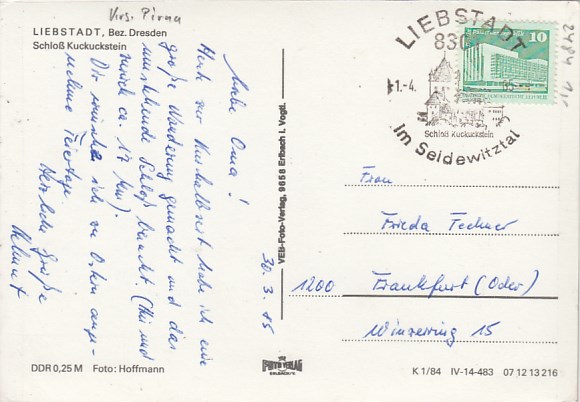 Krs. Pirna
LIEBSTADT, Bez. Dresden
Schloß Kuckuckstein
Liebe Oma!
Heute vor
habe ich eine
große Wanderung gemacht und das
umstehende Schloß besucht. (Hin und
zurück ca. 17 km).
Dir wünsche ich zu Ostern ange-
nehme Feiertage
Herzliche Grüße
Helmut
30. 3. 85
VEB-Foto-Verlag, 9658 Erlbach i. Vogtl.
FOTO VERLAG
ERLBACH/V.
LIEBSTADT
830
-1.-4.
85
Schloß Kuckuckstein
Im Seidewitztal
10
DDR
2484
Frau
Frieda Fechner
1200 Frankfurt (Oder)
Winzerring 15
DDR 0,25 M Foto: Hoffmann
K 1/84 IV-14-483 07 12 13 216